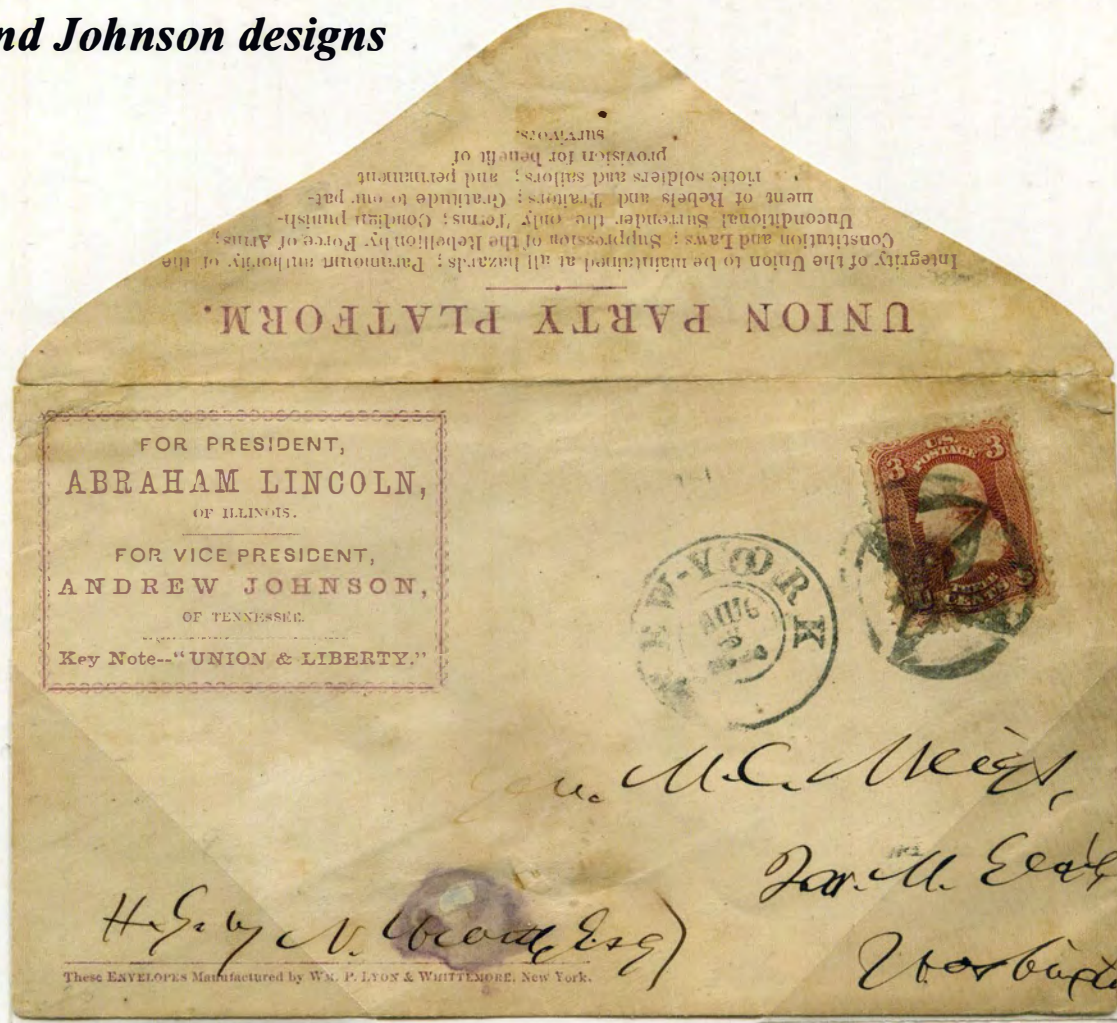 nd Johnson designs
UNION PARTY PLATFORM.
Integrity of the Union to be maintained at all hazards; Paramount authority of the
Constitution and Laws; Suppression of the Rebellion by Force of Arms;
Unconditional Surrender the only Terms; Condign punish-
ment of Rebels and Traitors; Gratitude to our pat-
riotic soldiers and sailors; and permanent
provision for benefit of
survivors.
FOR PRESIDENT,
ABRAHAM LINCOLN,
OF ILLINOIS.
FOR VICE PRESIDENT,
ANDREW JOHNSON,
OF TENNESSEE.
Key Note--"UNION & LIBERTY."
U.S. POSTAGE
3 3
CENTS
NEW-YORK
AUG
Gen. M.C. Meigs,
Esq
These ENVELOPES Manufactured by WM. P. LYON & WHITTEMORE, New York.